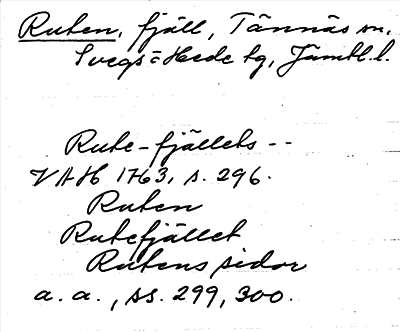 Ruten, fjäll, Tännäs sn,
Svegs = Hede tg, Jämtl. l.
Rute-fjällets --
VAH 1763, s. 296.
Ruten
Rutefjället
Rutens sidor
a. a., ss. 299, 300.